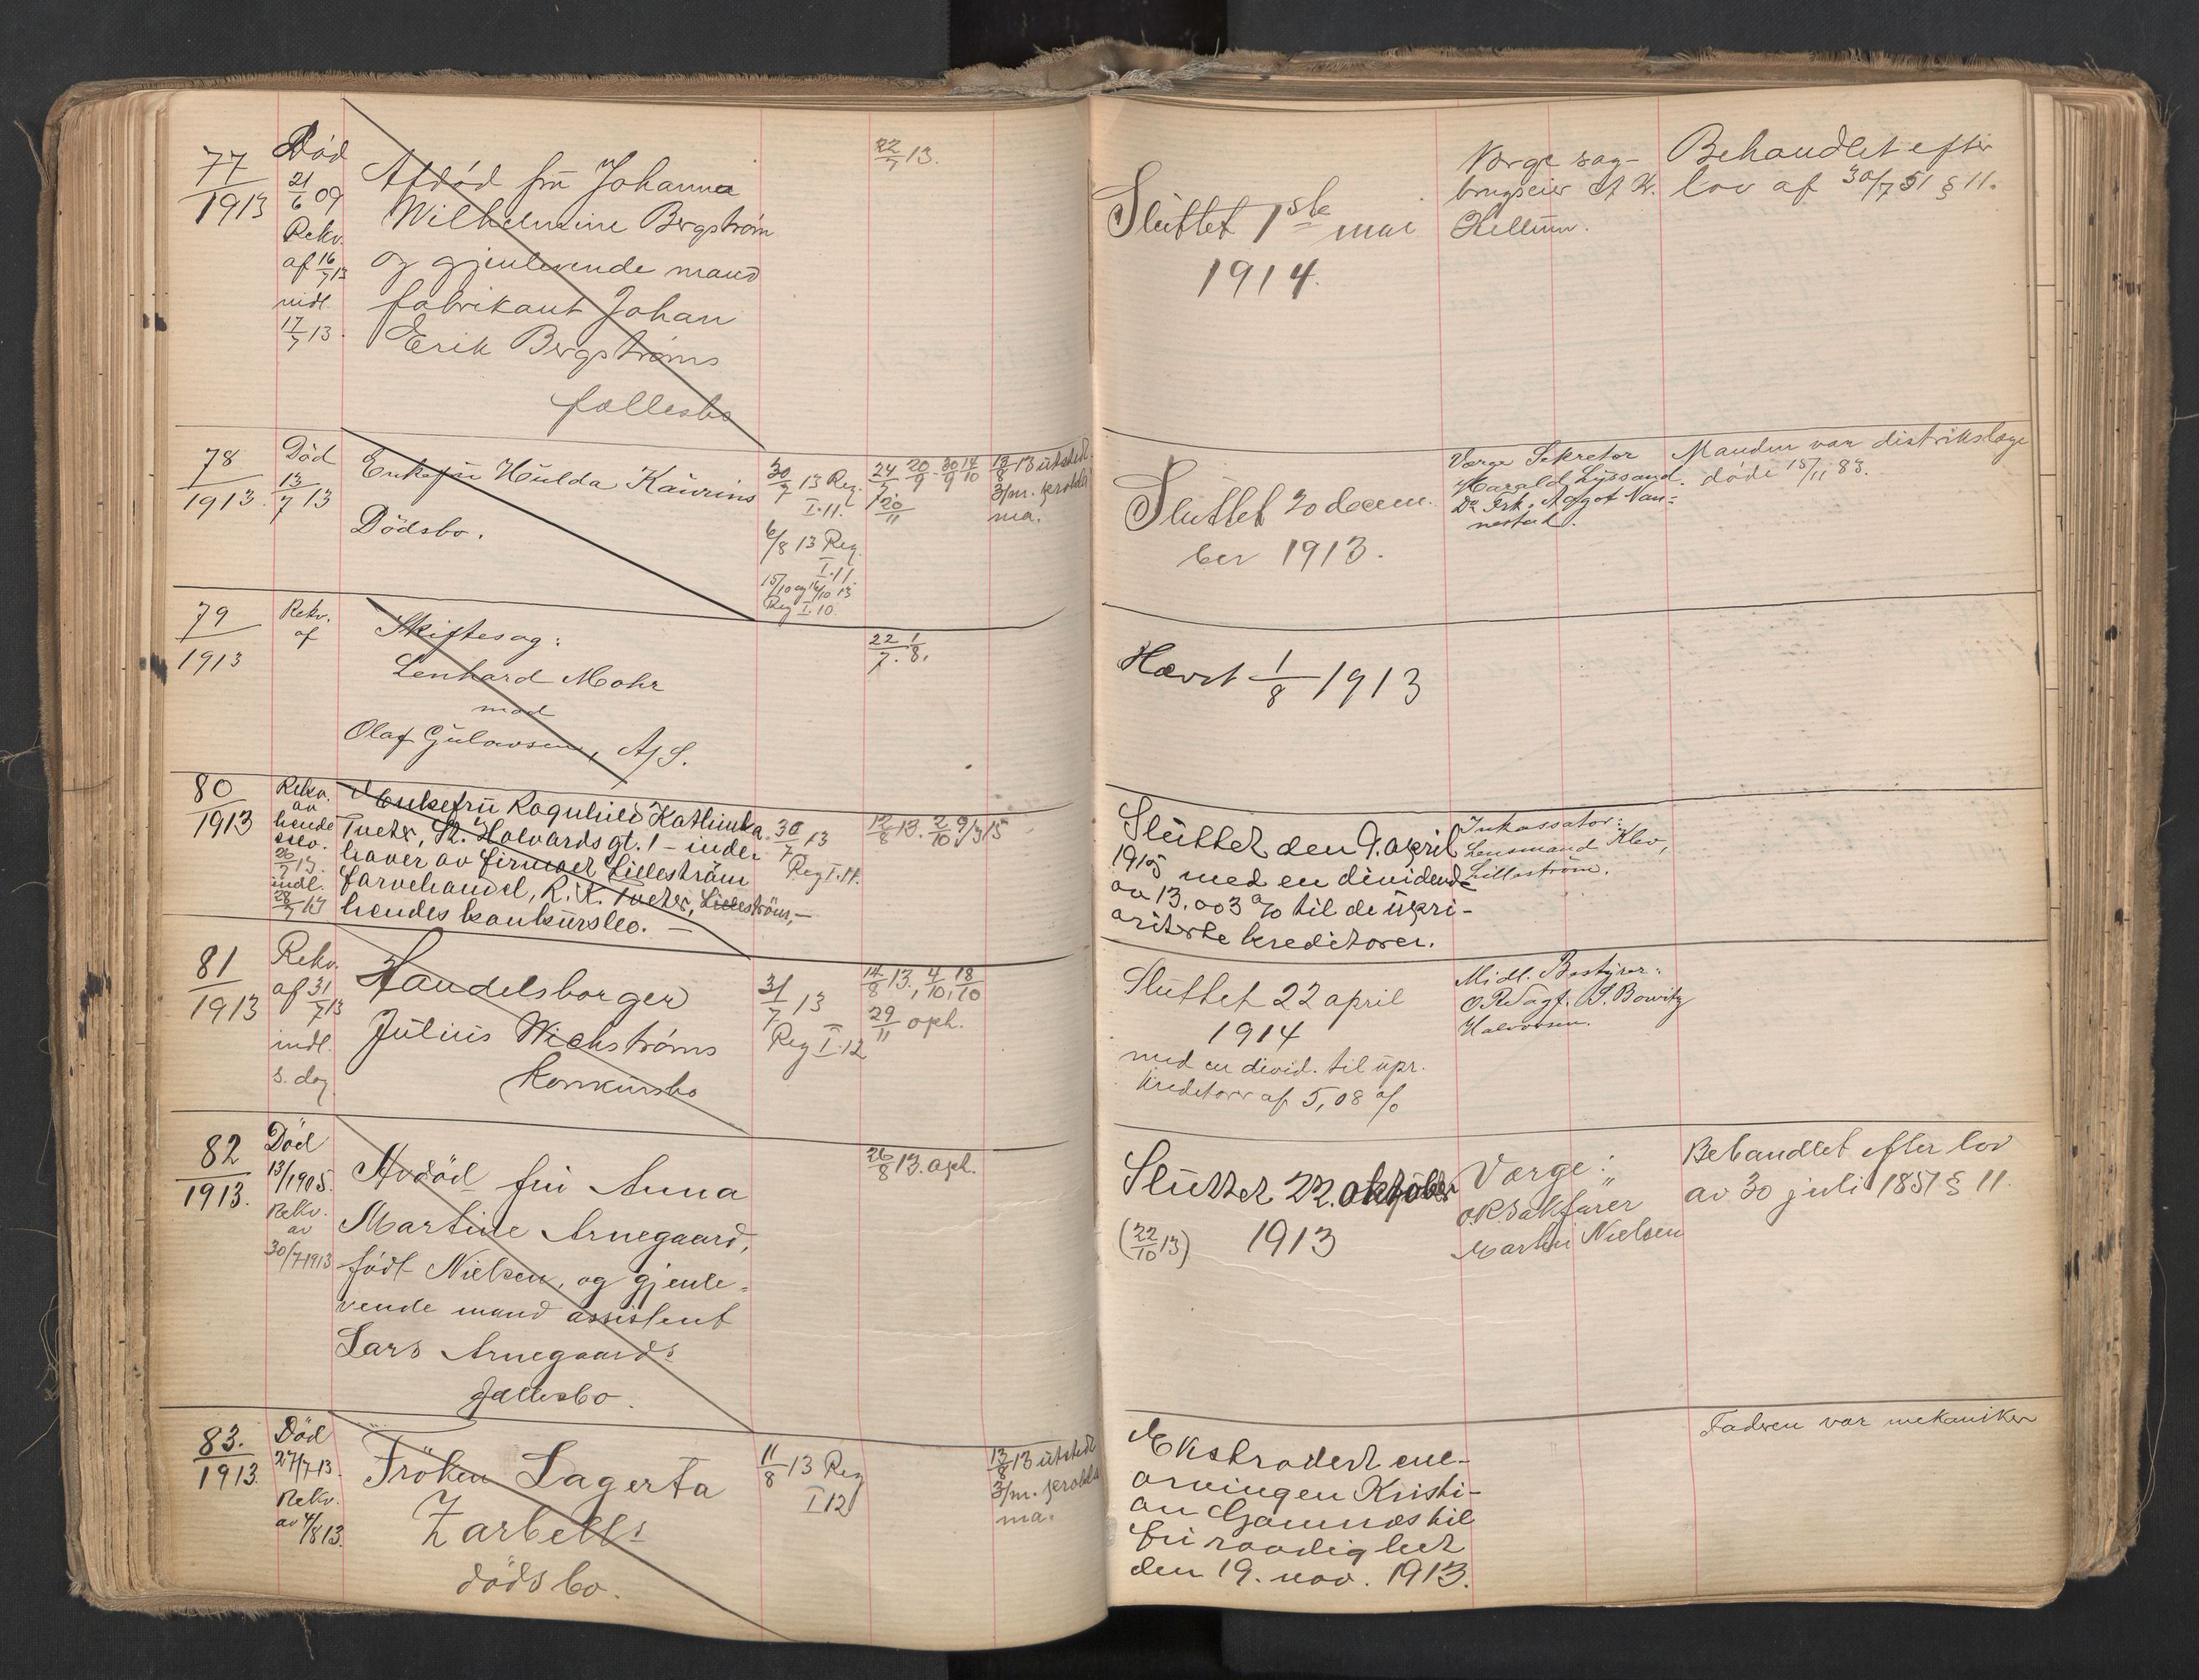 77
1913
Död
21/6 09
Rekv.
af 16/7 13
indl.
17/7 13.
Afdöd frü Johanna
Wilhelmine Bergström
og gjenlevende mand
fabrikant Johan
Erik Bergströms
fællesbo
22/7 13.
Slüttet 1ste mai
1914.
Værge sag-
brugseier A. K.
Hellüm.
Behandlet efter
lov af 30/7 51 § 11.
78
1913.
Död
13/7 13
Enkefrü Hülda Kaürins
Dödsbo.
30/7 13 Reg.
I.11.
6/8 13 Reg.
I.11.
15/10 og 16/10 13
Reg I.10.
24/7 20/9 30/9 14/10
20/11
13/8 13 ütstedt
3/m. prokla
ma.
Slüttet 20 decem
ber 1913.
Værge Sekretær
Harald Lyssand.
Do Frk. Aagot Nan-
nestad.
Manden var distriktslæge
døde 15/11 83.
79
1913
Rekv.
af
Skiftesag:
Lenhard Mohr
mod
Olaf Gülowsen, A/S.
22/7. 1/8.
Hævet 1/8 1913
80
1913
Rekv.
av
hende
selv.
26/7 13.
indl.
28/7 13
Enkefrü Ragnhild Kathinka
Tveter, St. Halvards gt. 1 – inde-
haver av firmaet Lilleström
farvehandel, R. K. Tveter, Lilleström, –
hendes konkürsbo. –
30/7 13
Reg I.11.
12/8 13. 2/10 9/3 15
Slüttet den 9. april
1915 med en dividende
av 13,003 % til de üpri-
oriterte kreditorer.
Inkassator:
Lensmand Klev,
Lilleström.
81
1913
Rekv.
af 31/7 13
indl.
s. dag
Handelsborger
Jülius Wichströms
konkürsbo
31/7 13
Reg I.12
14/8 13., 4/10, 18/10
29/11 oph.
Slüttet 22 april
1914
med en divid. til üpr.
kreditorer af 5,08 %
Midl. Bestyrer:
O.R.sagf. S. Bowitz
Halvorsen.
82
1913.
Död
13/1905.
Rekv.
av
30/7 1913
Avdöd frü Anna
Martine Arnegaard,
födt Nielsen, og gjenle-
vende mand assistent
Lars Arnegaards
fællesbo.
26/8 13. oph.
Slüttet 22. oktober
(22/10 13) 1913
Værge:
O.R.sakfører
Martin Nielsen
Behandlet efter lov
av 30 juli 1851 § 11.
83.
1913.
Död
27/7 13.
Rekv.
av 4/8 13.
Fröken Lagerta
Zarbells
dödsbo.
11/8 13 Reg
I 12
13/8 13 ütstedt
3/m. prokla
ma.
Ekstradert ene-
arvingen Kristi-
an Gamnæs til
fri raadighet
den 19. nov. 1913.
Faderen var mekaniker